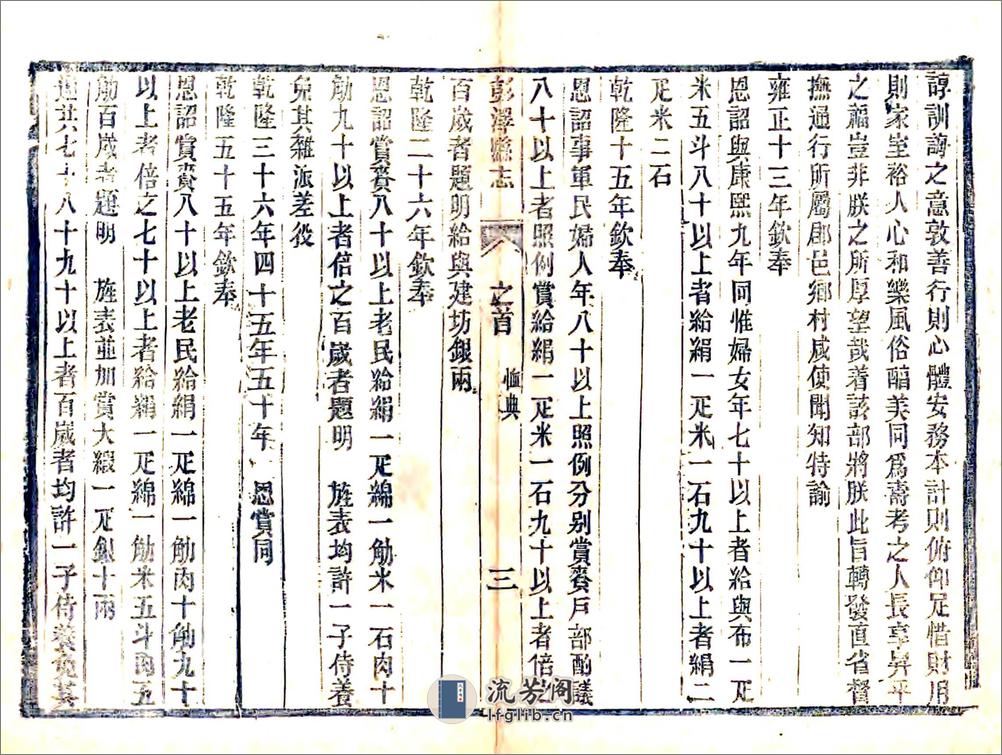 諄訓誨之意敦善行則心體安務本計則俯仰足惜財用
則家室裕人心和樂風俗醕美同爲壽考之人長享昇平
之福豈非朕之所厚望哉着該部將朕此旨轉發直省督
撫通行所屬郡邑鄉村咸使聞知特諭
雍正十三年欽奉
恩詔與康熙九年同惟婦女年七十以上者給與布一疋
米五斗八十以上者給絹一疋米一石九十以上者絹二
疋米二石
乾隆十五年欽奉
恩詔事軍民婦人年八十以上照例分别賞賚戶部酌議
八十以上者照例賞給絹一疋米一石九十以上者倍之
彭澤縣志 之首 恤典 三
百歲者題明給與建坊銀兩
乾隆二十六年欽奉
恩詔賞賚八十以上老民給絹一疋綿一觔米一石肉十
觔九十以上者倍之百歲者題明 旌表均許一子侍養
免其雜派差役
乾隆三十六年四十五年五十年 恩賞同
乾隆五十五年欽奉
恩詔賞賚八十以上老民給絹一疋綿一觔肉十觔九十
以上者倍之七十以上者給絹一疋綿一觔米五斗肉五
觔百歲者題明 旌表並加賞大緞一疋銀十兩
共七十八十九十以上者百歲者均許一子侍養免其
流芳阁
lfglib.cn